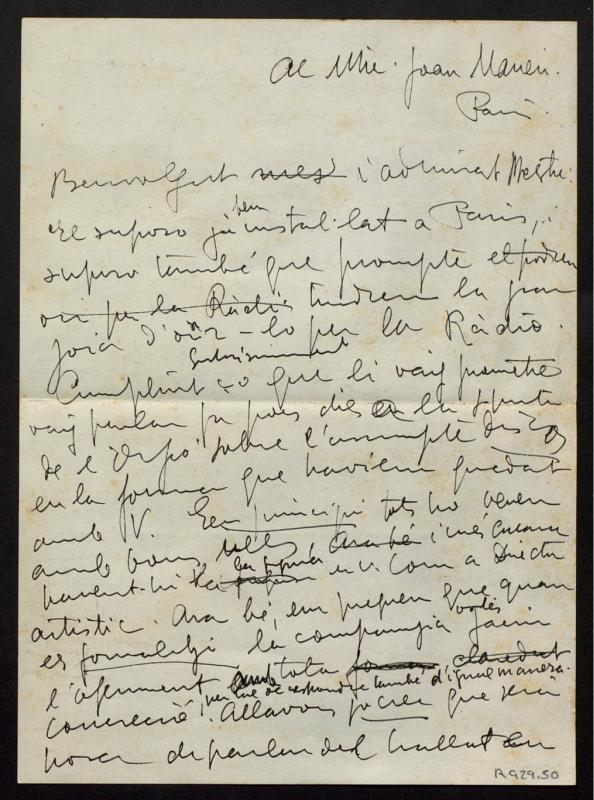 Al Mtre. Joan Manén.
Paris.
Benvolgut mes i admirat Mestre:
El suposo ja ben instal·lat a Paris, i
suposo també que prompte el podrem
oir per la Ràdio tindrem la gran
joia d'oïr-lo per la Ràdio.
Cumplint ço que li vaig prometre
vaig parlar fa pocs dies a la Junta
de l'Orfeó sobre l'assumpte discos
en la forma que haviem quedat
amb V. En principi tots ho veuen
amb bons ulls, Ara bé i més encara
havent-hi la
artistic. Ara bé, em preguen que quan
es formalitzi la companyia vostès facin
l'oferiment amb tota claredat
concreció, per tal de respondre també d'igual manera.
Allavors jo crec que serà
hora de parlar del trellat en
R.929.50